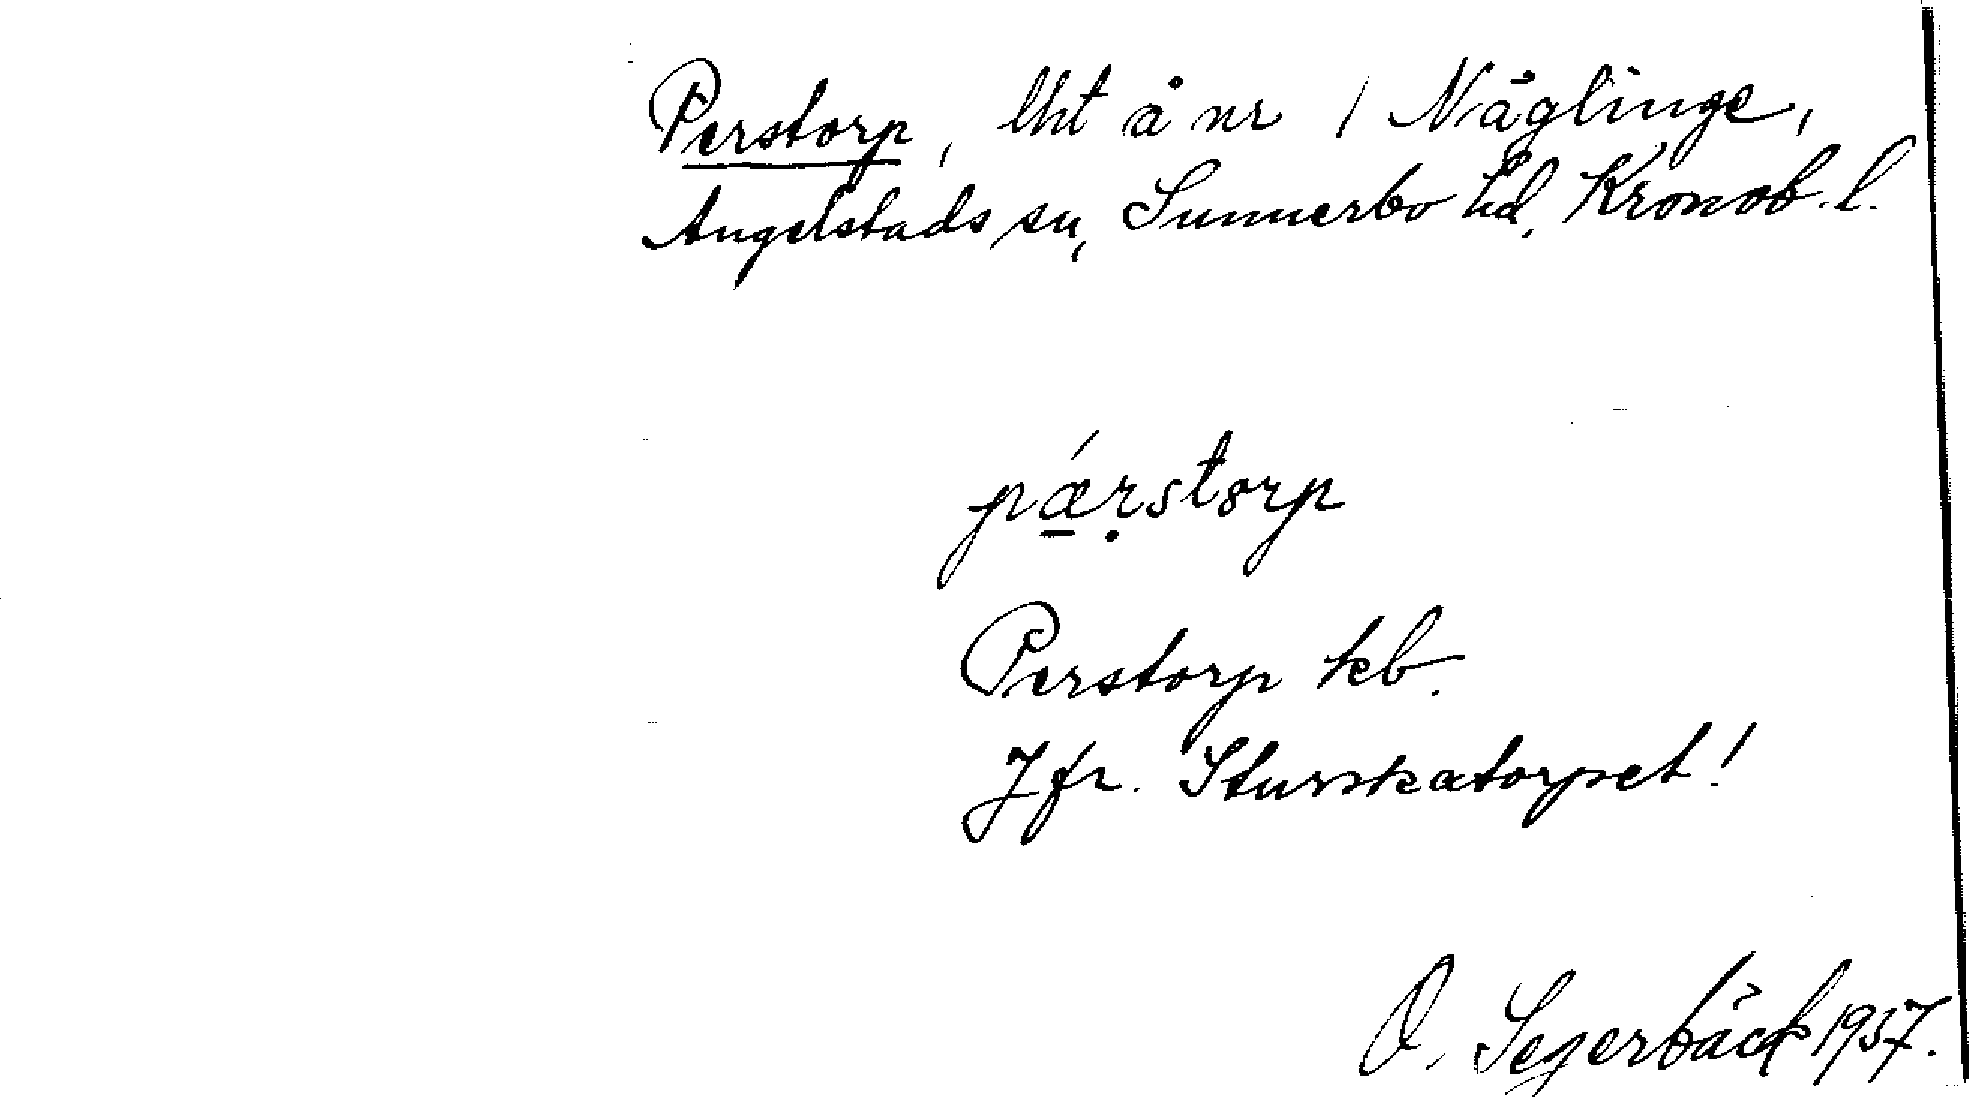 Perstorp, lht å nr 1 Näglinge,
Angelstads sn, Sunnerbo hd, Kronob. l.
pǽ̱ṛstorp
Perstorp kb.
Jfr. Sturskatorpet!
O. Segerbäck 1957.